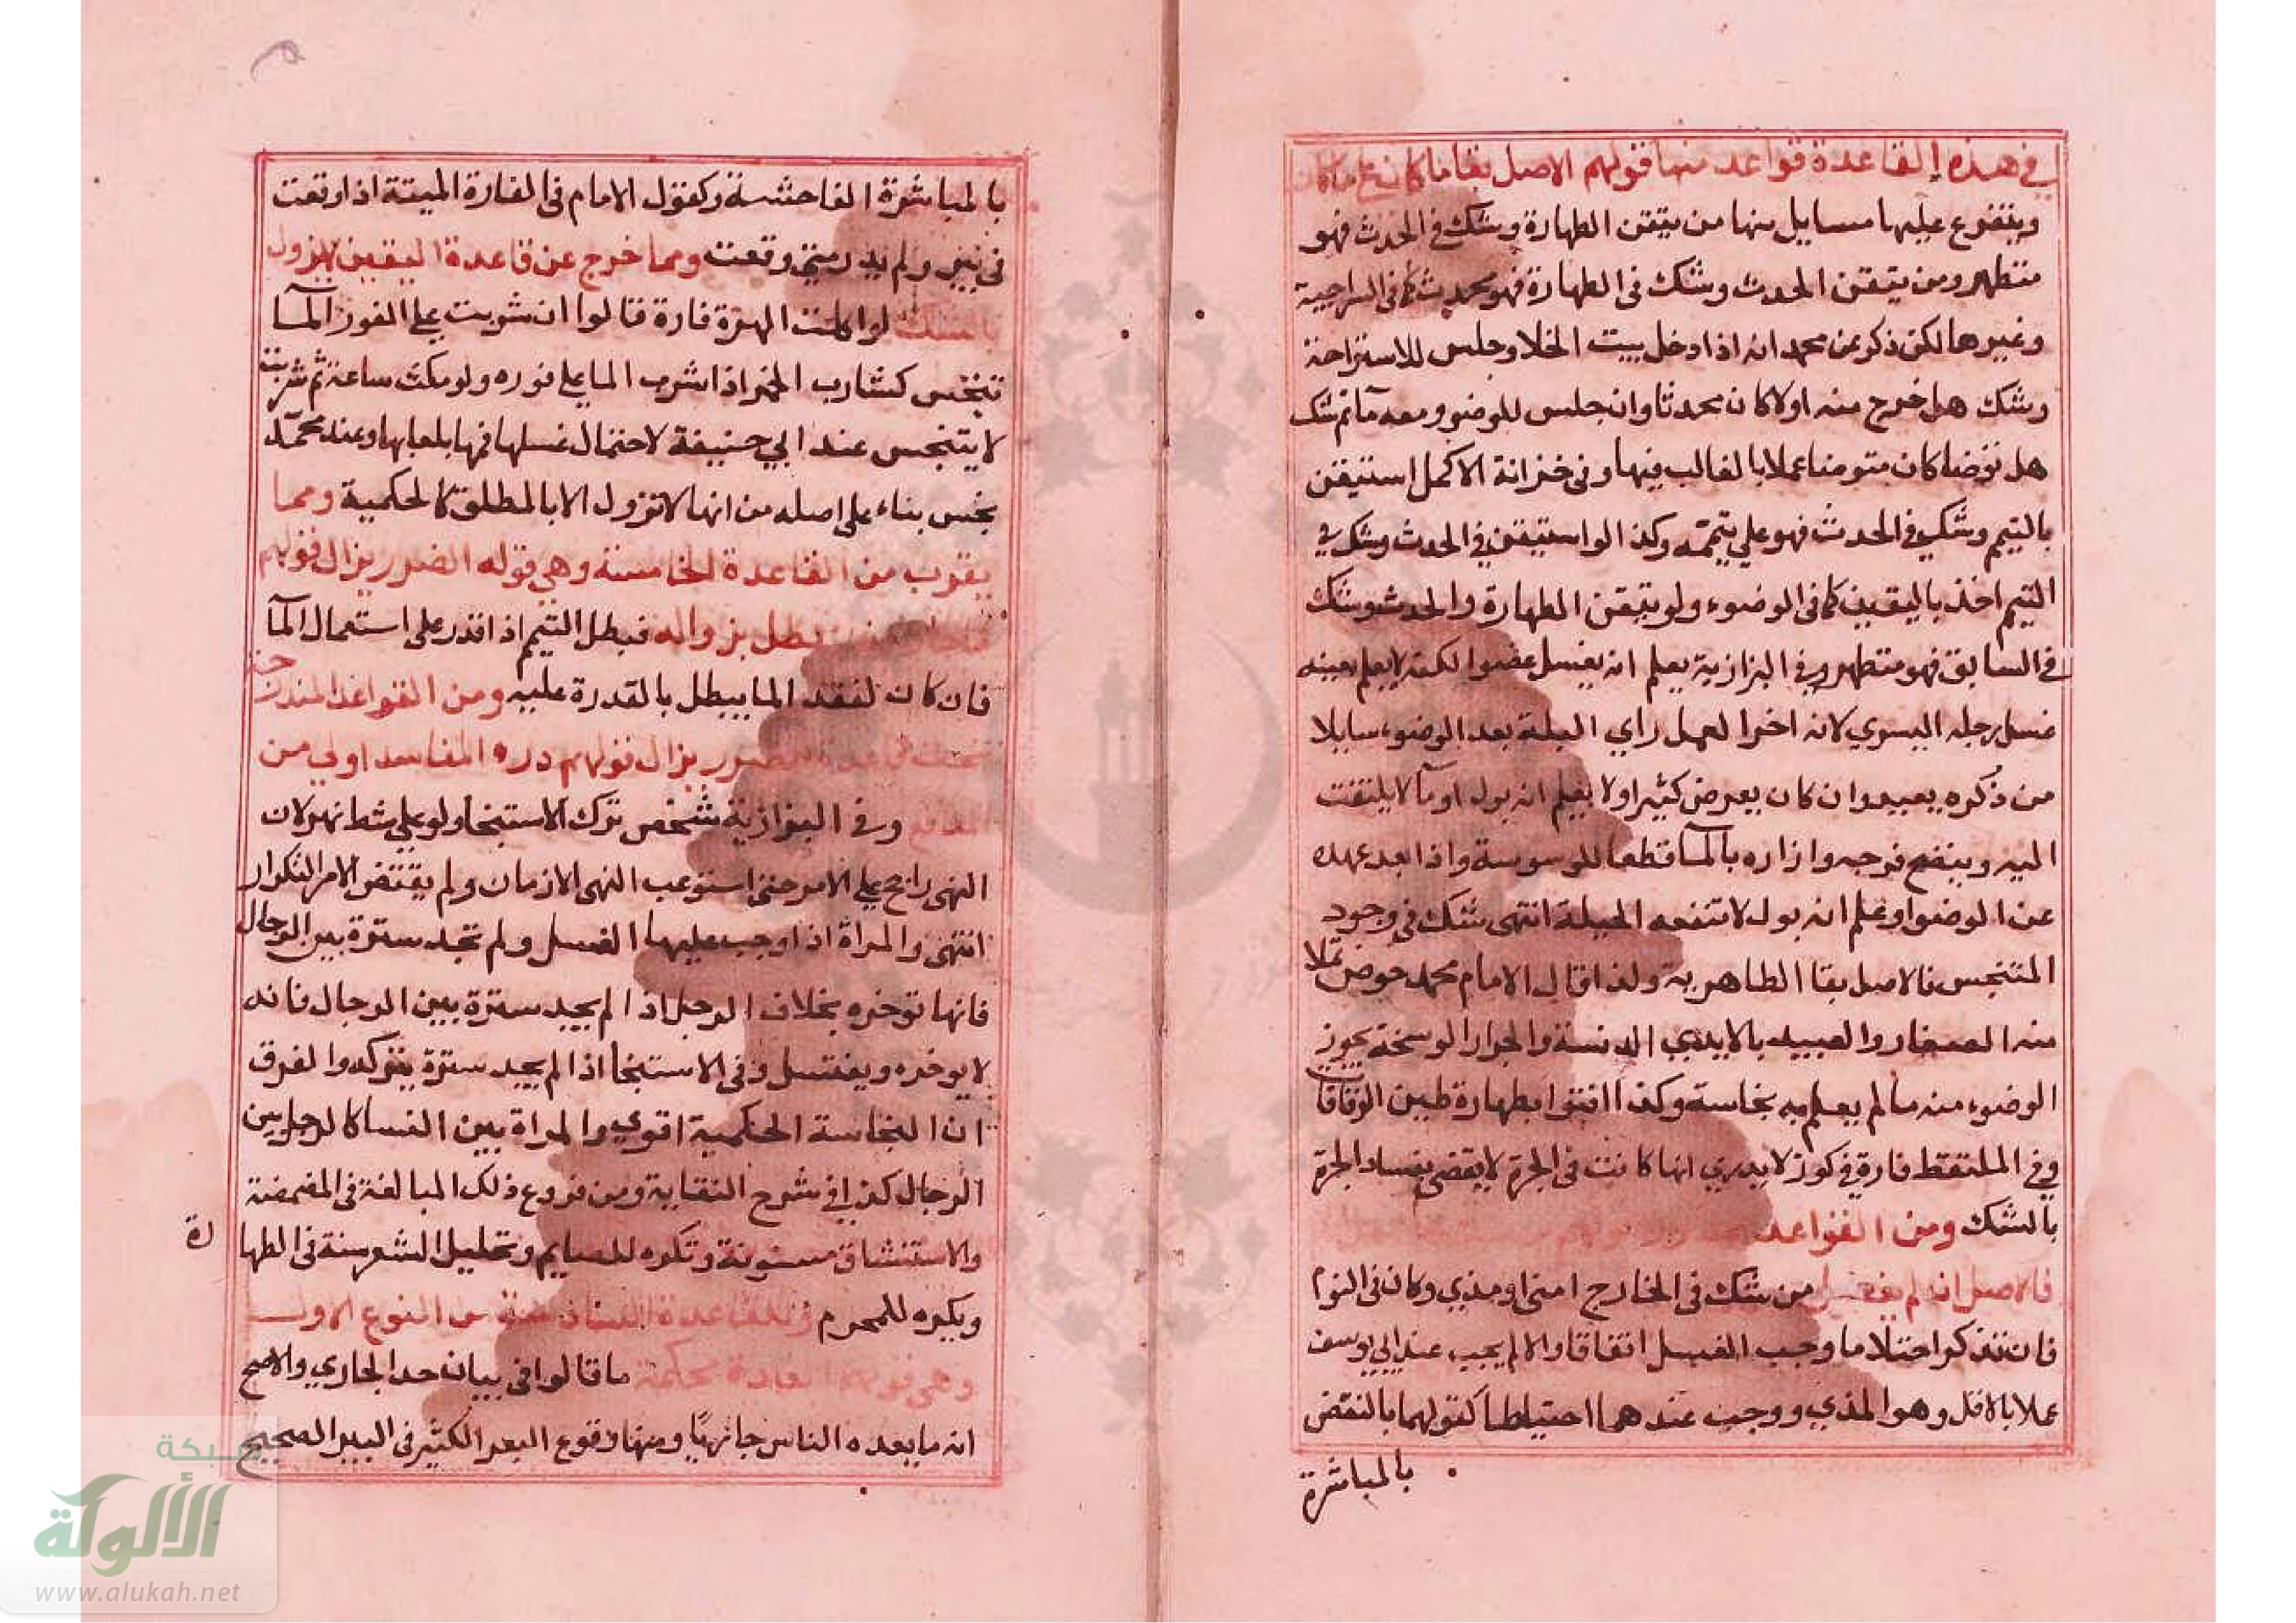 في هذه القاعدة قواعد منها قولهم الاصل بقا ما كان على ما كان
ويتفرع عليها مسايل منها من تيقن الطهارة وشك في الحدث فهو
متطهر ومن تيقن الحدث وشك في الطهارة فهو محدث كما في السراجية
وغيرها لكن ذكر عن محمد انه اذا دخل بيت الخلا وجلس للاستراحة
وشك هل خرج منه اولا كان محدثا وان جلس للوضو ومعه مآ ثم شك
هل توضا كان متوضا عملا بالغالب فيها وفي خزانة الاكمل استيقن
بالتيمم وشك في الحدث فهو علي تيممه وكذا لو استيقن في الحدث وشك في
التيمم اخذ باليقين كما في الوضوء ولو تيقن الطهارة والحدث وشك
في السابق فهو متطهر وفي البزازية يعلم انه يغسل عضوا لكنه لا يعلم بعينه
غسل رجله اليسري لانه اخر العمل راي البلة بعد الوضوء سايلا
من ذكره يعيد وان كان يعرض كثيرا ولا يعلم انه بول او مآ لا يلتفت
اليه وينضح فرجه وازاره بالمآ قطعا للوسوسة واذا بعد عهده
عن الوضو او علم انه بول لا تنفعه الحيلة انتهى شك في وجود
المتنجس فالاصل بقا الطاهرية ولذا قال الامام محمد حوض تملا
منه الصغار والعبيد بالايدي الدنسة والجرار الوسخة يجوز
الوضوء منه ما لم يعلم به نجاسة وكذا افتوا بطهارة طين الوقاقات
وفي الملتقط فارة في كوز لا يدري انها كانت في الجرة لا يقضي بفساد الجرة
بالشك ومن القواعد
فالاصل انه لم يفعل من شك في الخارج امني او مذي وكان في النوم
فان تذكر احتلاما وجب الغسل اتفاقا والا لم يجب عند ابي يوسف
عملا بالاقل وهو المذي ووجب عندهما احتياطا كقولهما بالنقض
بالمباشرة
بالمباشرة الفاحشة وكقول الامام في الفارة الميتة اذا وقعت
في بئر ولم يدر متي وقعت ومما خرج عن قاعدة اليقين لا يزول
بالشك لو اكلت الهرة فارة قالوا ان شربت علي الفور المآ
تنجس كشارب الخمر اذا شرب الما علي فوره ولو مكث ساعة ثم شربت
لا يتنجس عند ابي حنيفة لاحتمال غسلها فمها بلعابها وعند محمد
نجس بناء على اصله من انها لا تزول الا بالمطلق كالحكمية ومما
يقرب من القاعدة الخامسة وهي قوله الضرر يزال قولهم
بطل بزواله فبطل التيمم اذا قدر على استعمال المآ
فان كان لفقد الما يبطل بالقدرة عليه ومن القواعد المندرجة
يزال قولهم درء المفاسد اولي من
وفي البزازية شخص ترك الاستنجا ولو علي شط نهر لان
النهى راجح علي الامر حتى استوعب النهى الازمان ولم يقتض الامر التكرار
انتهى والمراة اذا وجب عليها الغسل ولم تجد سترة بين الرجال
فانها توخره بخلاف الرجل اذا لم يجد سترة بين الرجال فانه
لا يوخره ويغتسل وفي الاستنجا اذا لم يجد سترة يتركه والفرق
ان النجاسة الحكمية اقوي والمراة بين النسا كالرجل بين
الرجال كذا في شرح النقاية ومن فروع ذلك المبالغة في المضمضة
والاستنشاق مسنونة وتكره للصايم وتحليل الشعر سنة في الطها
رة
ويكره للمحرم وتلك القاعدة السادسة من النوع الاول
وهي قولهم العادة محكمة ما قالوا في بيان حد الجاري والاصح
انه ما يعده الناس جاريًا ومنها وقوع البعر الكثير في البير الصحيح
شبكة
الألوكة
www.alukah.net